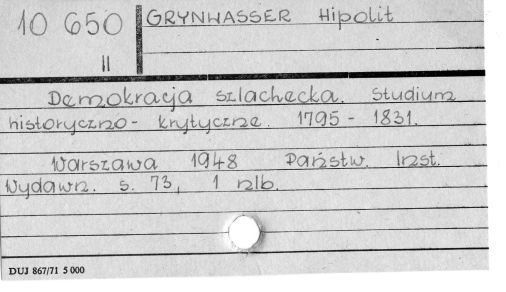 10 650
II
GRYNWASSER Hipolit
Demokracja szlachecka. Studium
historyczno - krytyczne. 1795 - 1831.
Warszawa 1948 Państw. Inst.
Wydawn. s. 73, 1 nlb.
DUJ 867/71 5 000